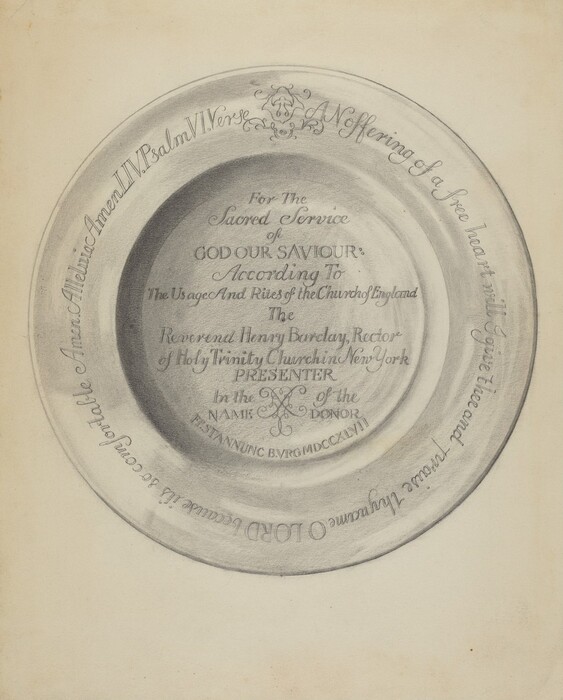 AN offering of a free heart will I give thee and praise thy name O LORD because it's so comfortable Amen. Alleluia Amen LIV. Psalm VI. Verse
For The
Sacred Service
of
GOD OUR SAVIOUR:
According To
The Usage And Rites of the Church of England
The
Reverend Henry Barclay, Rector
of Holy Trinity Church in New York
PRESENTER
In the of the
NAME DONOR
FEST ANNUNC B.VRG MDCCXLVII